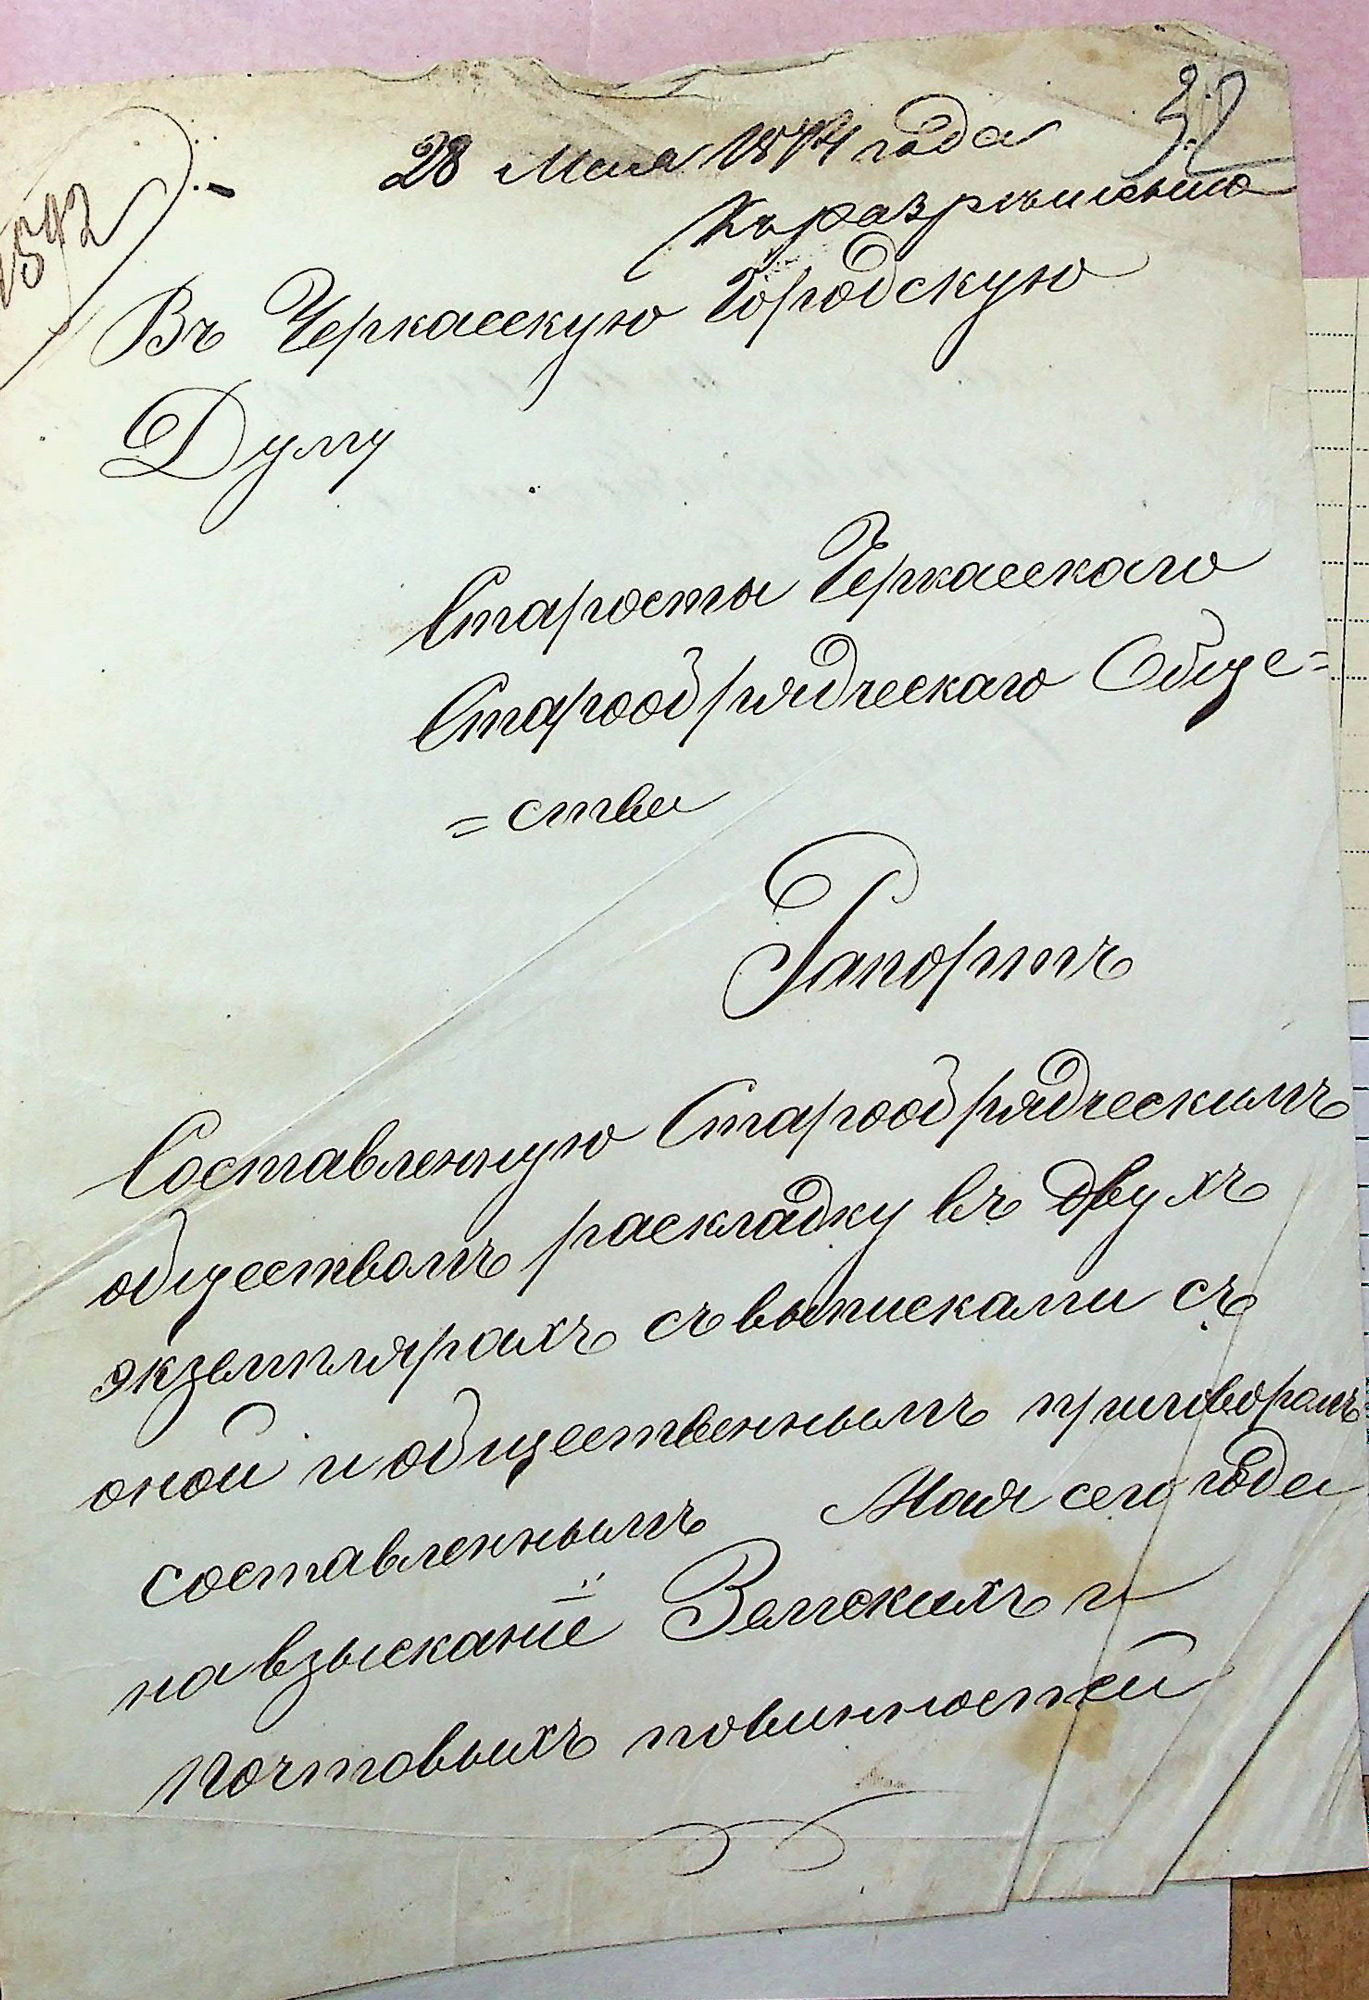 32
28 Мая 1874 года
Къ разрѣшенію
1592
Въ Черкасскую Городскую
Думу
Старосты Черкасскаго
Старообрядческаго Обще=
=ства
Рапортъ
Составленную Старообрядческимъ
обществомъ раскладку въ двухъ
экземплярахъ съ выписками съ
оной и общественнымъ приговоромъ
составленнымъ Мая сего года
на взысканіе Земскихъ и
почтовыхъ повинностей